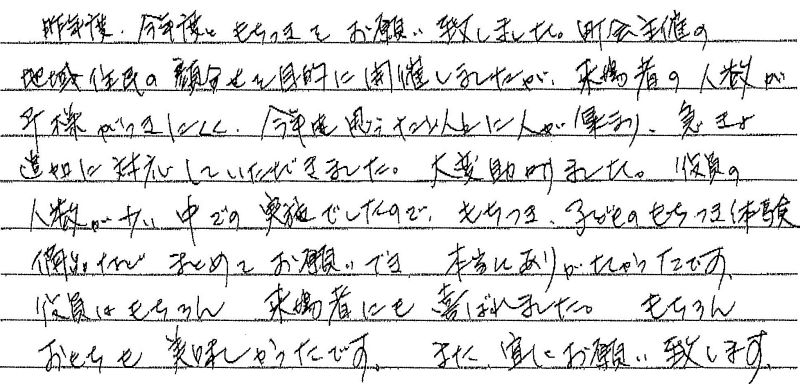 昨年度、今年度ともちつきをお願い致しました。町会主催の
地域住民の顔合せを目的に開催しましたが、来場者の人数が
予想がつきにくく、今年度思った以上に人が集まり、急きょ
追加に対応していただきました。大変助かりました。役員の
人数が少い中での実施でしたので、もちつき、子どものもちつき体験
備品などまとめてお願いでき、本当にありがたかったです。
役員はもちろん 来場者にも喜ばれました。 もちろん
おもちも美味しかったです。 また、宜しくお願い致します。